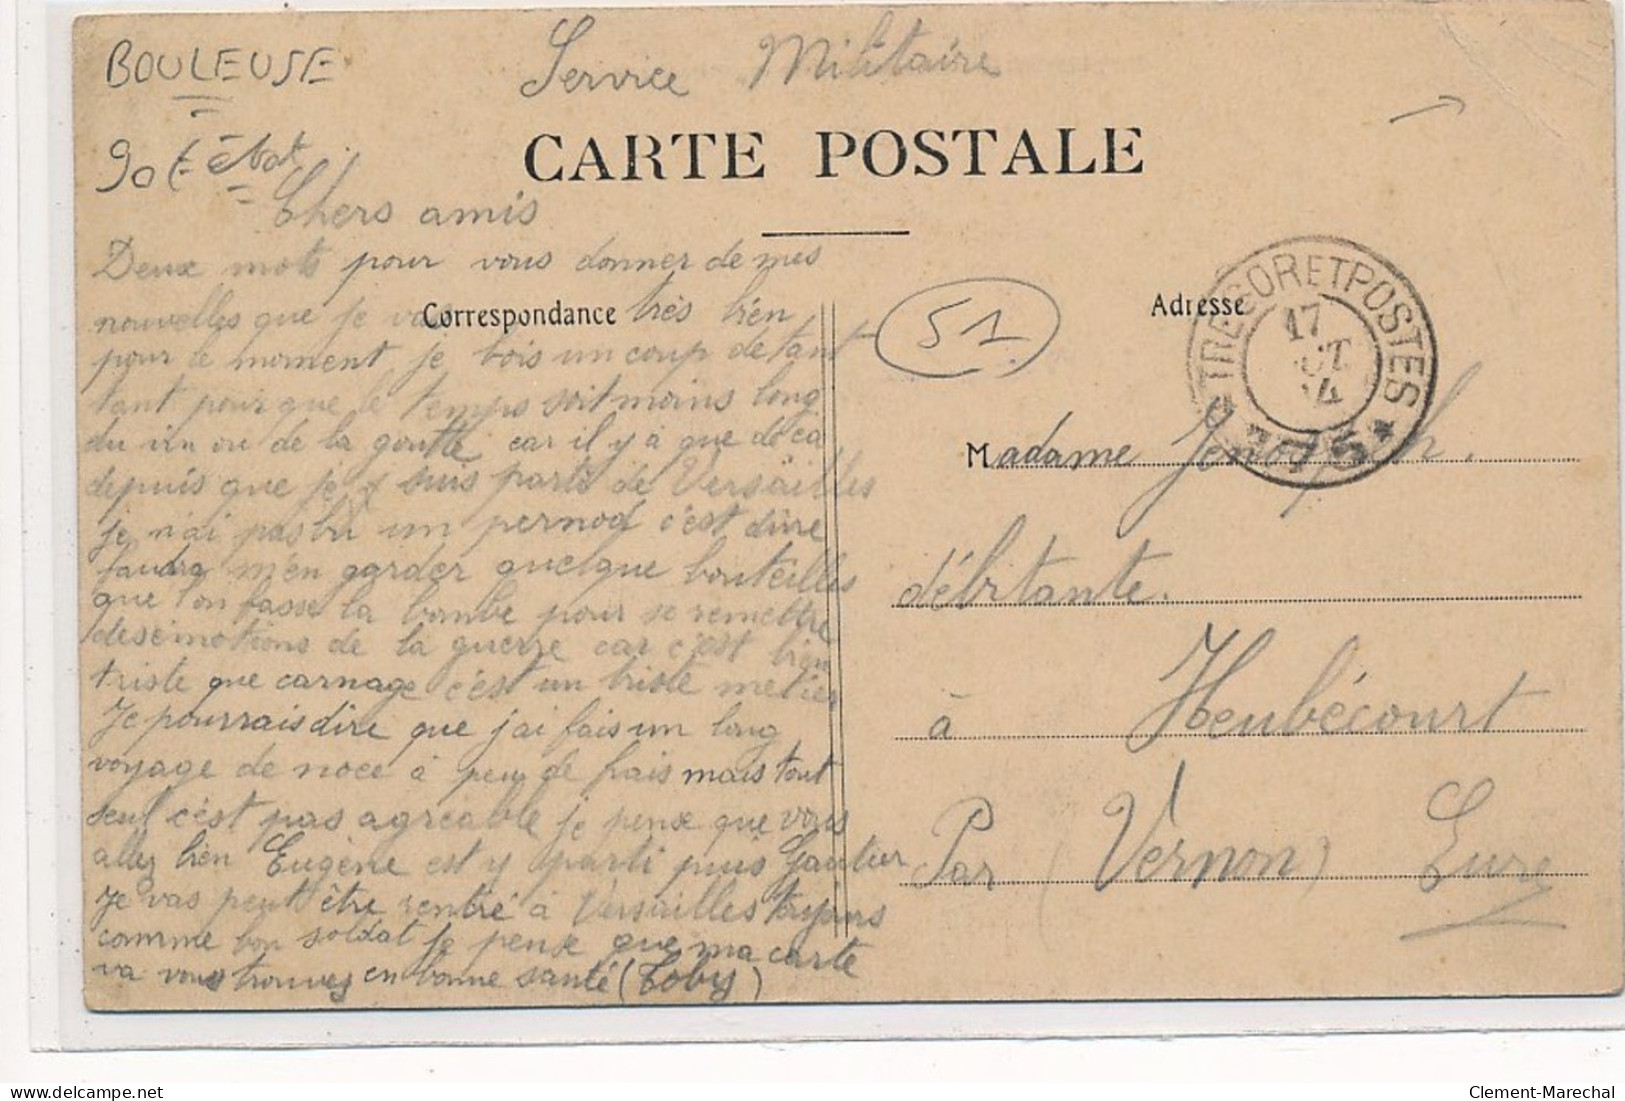 BOULEUSE
Service Militaire
CARTE POSTALE
Chers amis
Deux mots pour vous donner de mes
nouvelles que je vas très bien
pour le moment je bois un coup de tant
tant pour que le temps soit moins long
du vin ou de la goutte car il y à que de ca
depuis que je suis parti de Versailles
je n'ai pas bu un pernod c'est dire
faudra m'en garder quelque bouteilles
que l'on fasse la bombe pour se remettre
des emotions de la guerre car c'est bien
triste que carnage c'est un triste metier
Je pourrais dire que j'ai fais un long
voyage de noce à peu de frais mais tout
seul c'est pas agreable je pense que vous
allez bien Eugène est y parti puis Gautier
Je vas peut être rentré à Versailles toujours
comme bon soldat Je pense que ma carte
va vous trouvez en bonne santé (Toby)
Correspondance
51
Adresse
TRESOR ET POSTES
17
Madame
débitante.
à Heubécourt
Par (Vernon) Eure
delcampe.net
Clement-Marechal